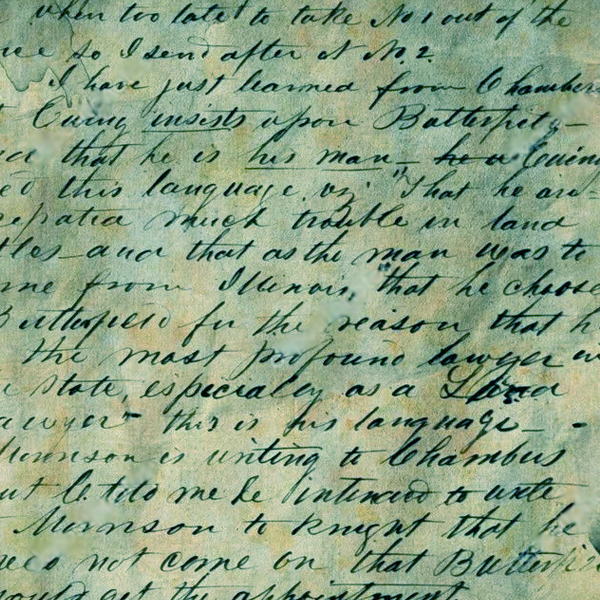 when too late to take No 1 out of the
so I send after it No. 2.
I have just learned from Chambers
Ewing insists upon Butterfield –
that he is his man – he a Ewing
this language, viz; "That he an-
much trouble in land
and that as the man was to
from Illinois, that he choose
Butterfield for the reason that h
the most profound lawyer in
State, especially as a Land
lawyer" this is his language –
Morrison is writing to Chambers
but C. told me he intended to write
Morrison to Knight that he
not come on that Butterfield
would get the appointment